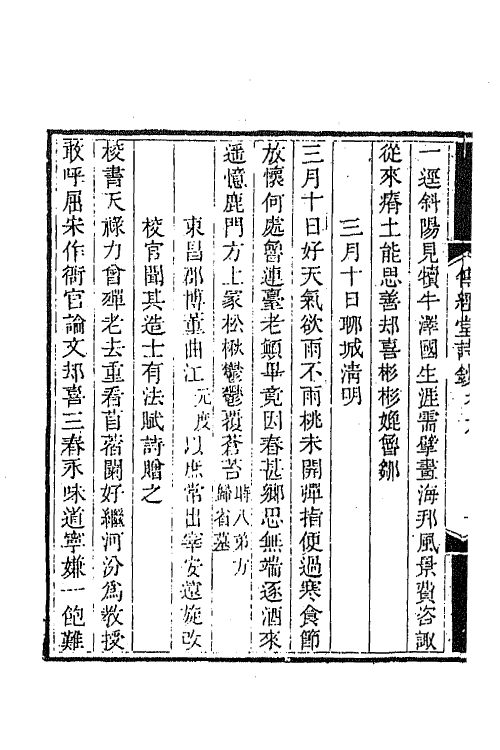 一逕斜陽見犢牛澤國生涯需擘畫海邦風景費咨諏
從來瘠土能思善却喜彬彬娩魯鄒
三月十日聊城淸明
三月十日好天氣欲雨不雨桃未開彈指便過寒食節
放懷何處魯連臺老顛畢竟因春甚鄉思無端逐酒來
遥憶鹿門方上冢松楸鬱鬱覆蒼苔時八弟方歸省墓
東昌郡博董曲江元度以庶常出宰安遠旋改
校官聞其造士有法賦詩贈之
校書天祿力曾殫老去重看苜蓿闌好繼河汾爲敎授
敢呼屈宋作衙官論文却喜三春永味道寧嫌一飽難
傳經堂詩鈔